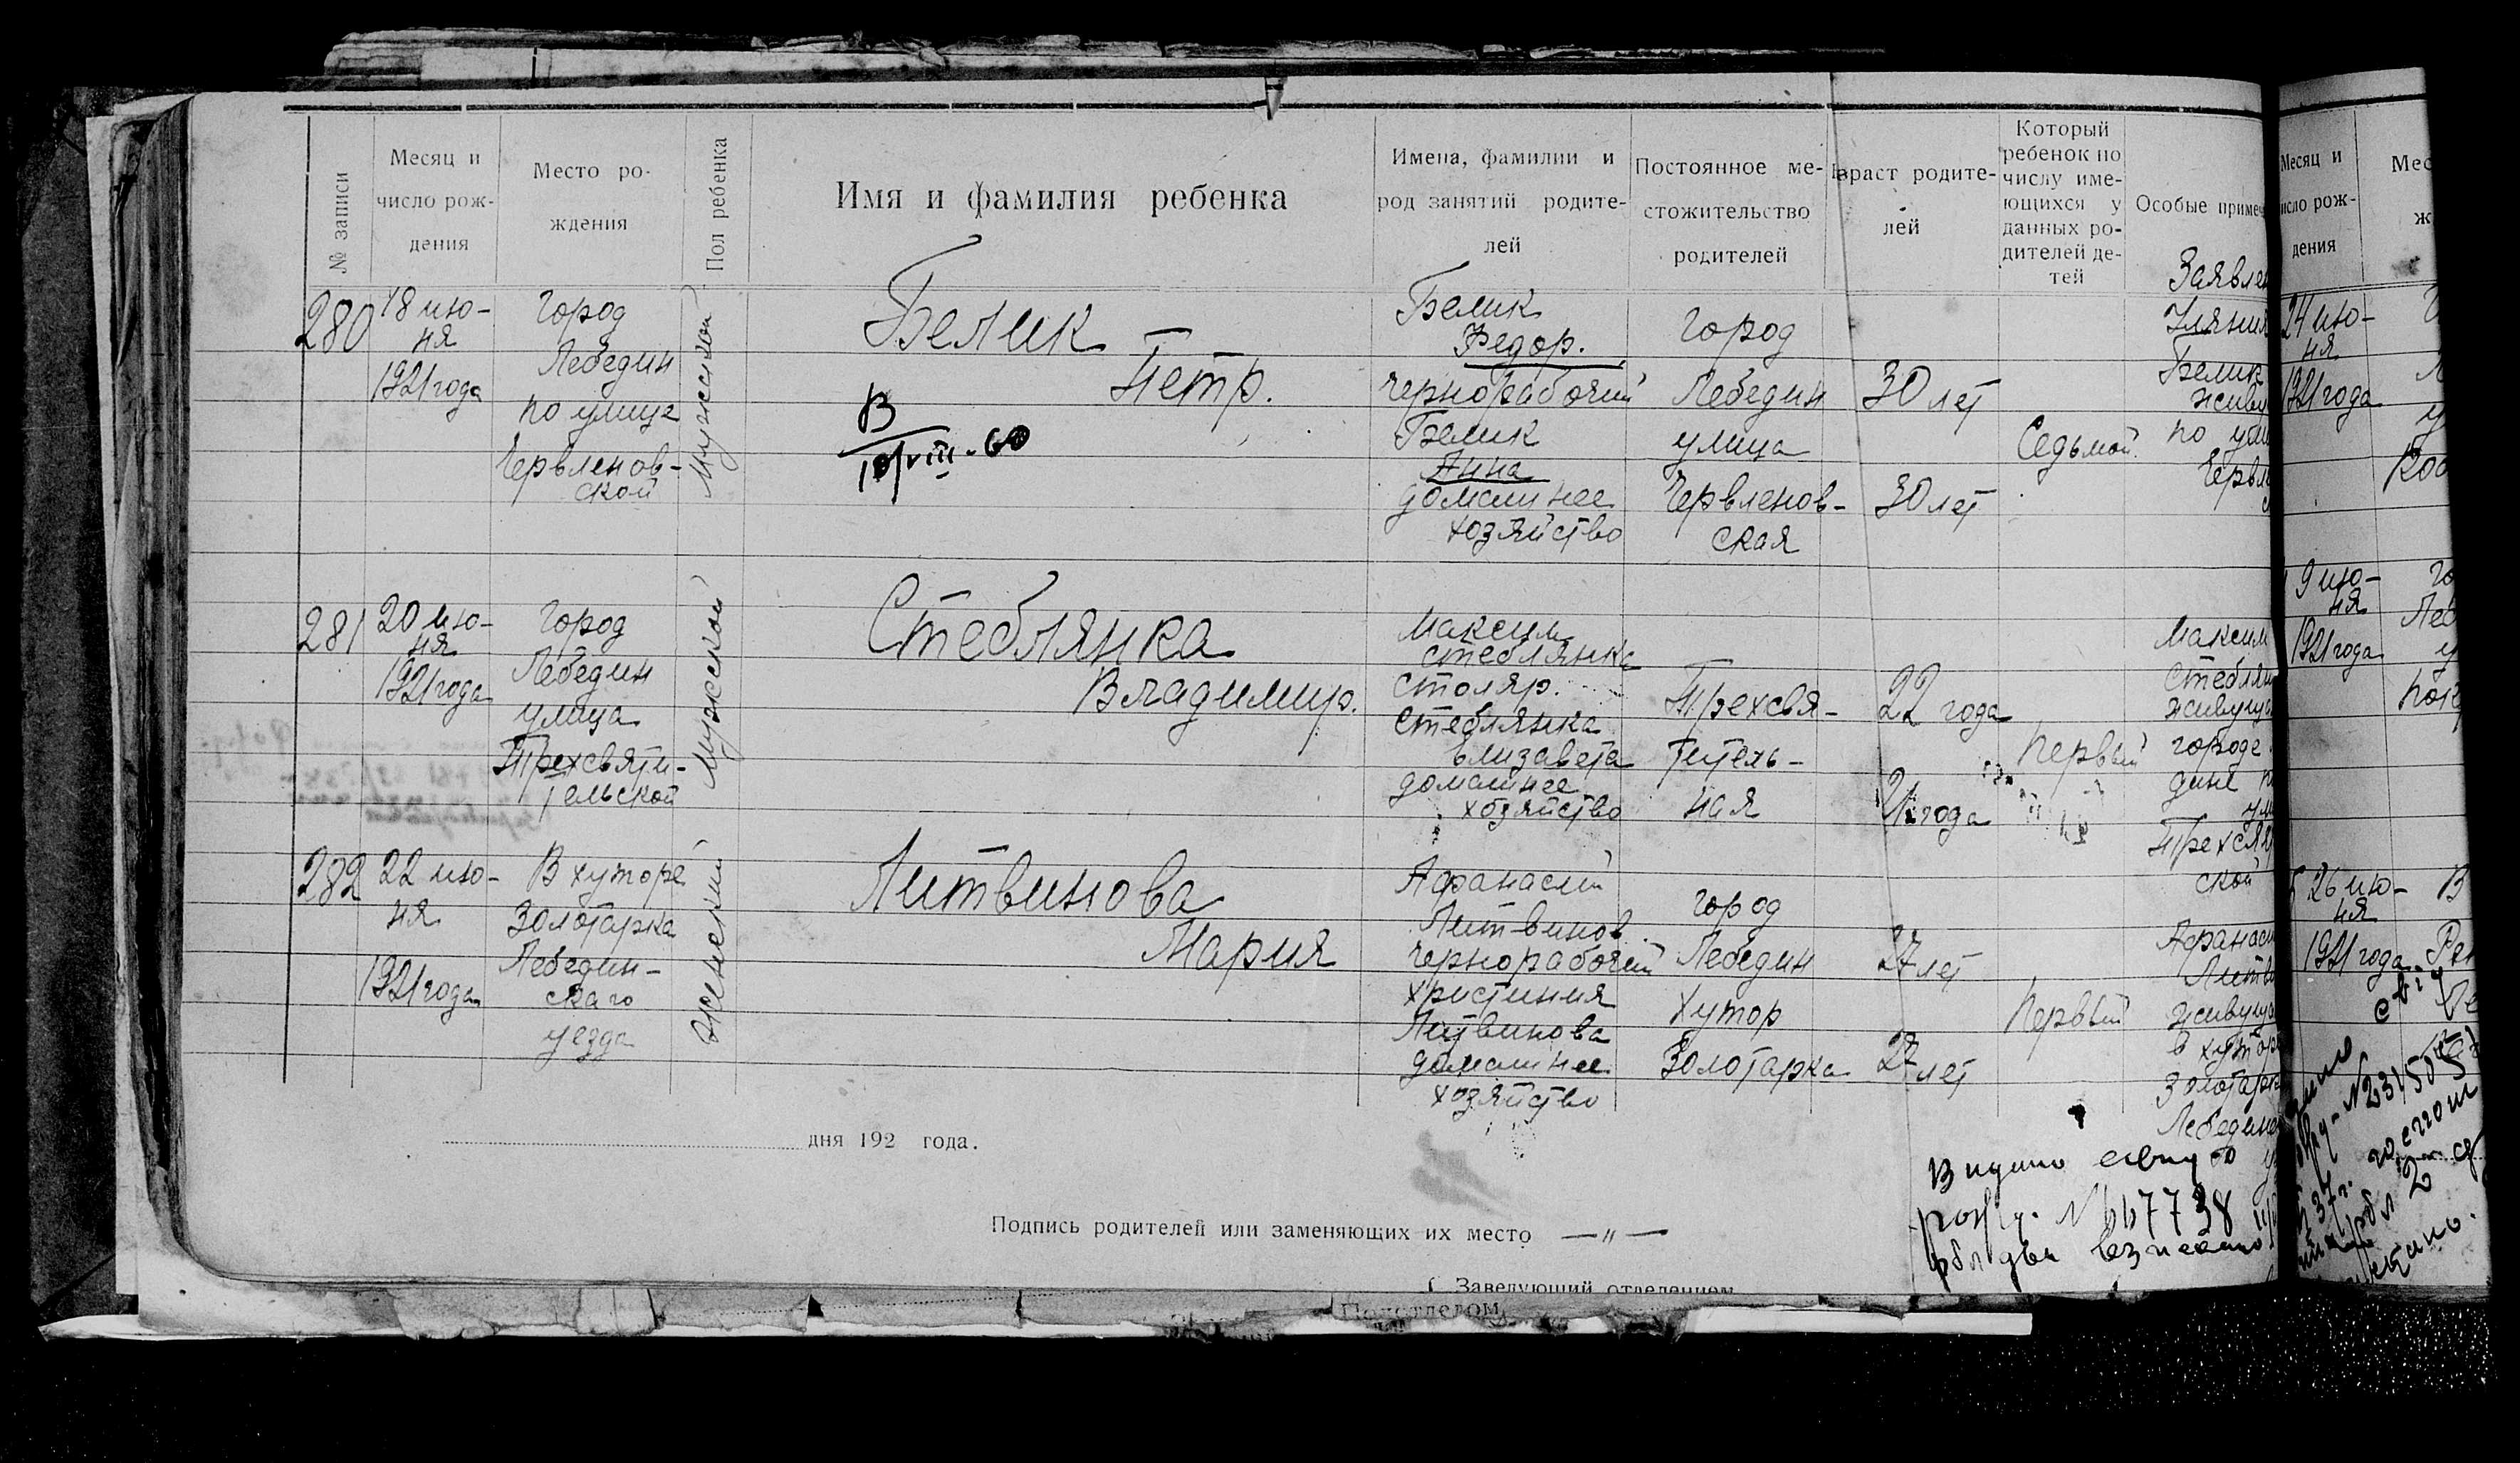 № записи
Месяц и
число рож-
дения
Место ро-
ждения
Пол ребенка
Имя и фамилия ребенка
Имена, фамилии и
род занятий родите-
лей
Постоянное ме-
стожительство
родителей
враст родите-
лей
Который
ребенок по
числу име-
ющихся у
данных ро-
дителей де-
тей
Особые примеч
Заявлен
280
18 ию-
ня
1921 года
город
Лебедин
по улице
Червленов-
ской
Мужской
Белик
Петр.
В
10/VIII-60
Белик
Федор.
чернорабочий
Белик
Анна
домашнее
хозяйство
город
Лебедин
улица
Червленов-
ская
30 лет
30 лет
Седьмой.
Белик
живу
по ули
Червл
281
20 ию-
ня
1921 года
город
Лебедин
улица
Трехсвяти-
тельской
Мужской
Стеблянка
Владимир.
Максим
Стеблянка
столяр.
Стеблянка
Елизавета
домашнее
хозяйство
Трехсвя-
титель-
ная
22 года
21 года
Первый
Максим
Стеблян
живущ
городе
дине
Трехсвя
ской
282
22 ию-
ня
1921 года
В хуторе
Золотарка
Лебедин-
скаго
уезда
Женский
Литвинова
Мария
Афанасий
Литвинов
чернорабочий
Христиния
Литвинова
домашнее
хозяйство
город
Лебедин
Хутор
Золотарка
27 лет
27 лет
Первый
Афанаси
Литви
живущ
в хутор
Золотарк
Лебединс
дня 192 года.
Подпись родителей или заменяющих их место —„—
Заведующий отделением
Подотделом
Месяц и
исло рож-
дения
Мес
ж
24 ию-
ня
1921 года
9 ию-
ня
1921 года
го
Леб
26 ию-
ня
1921 года
В